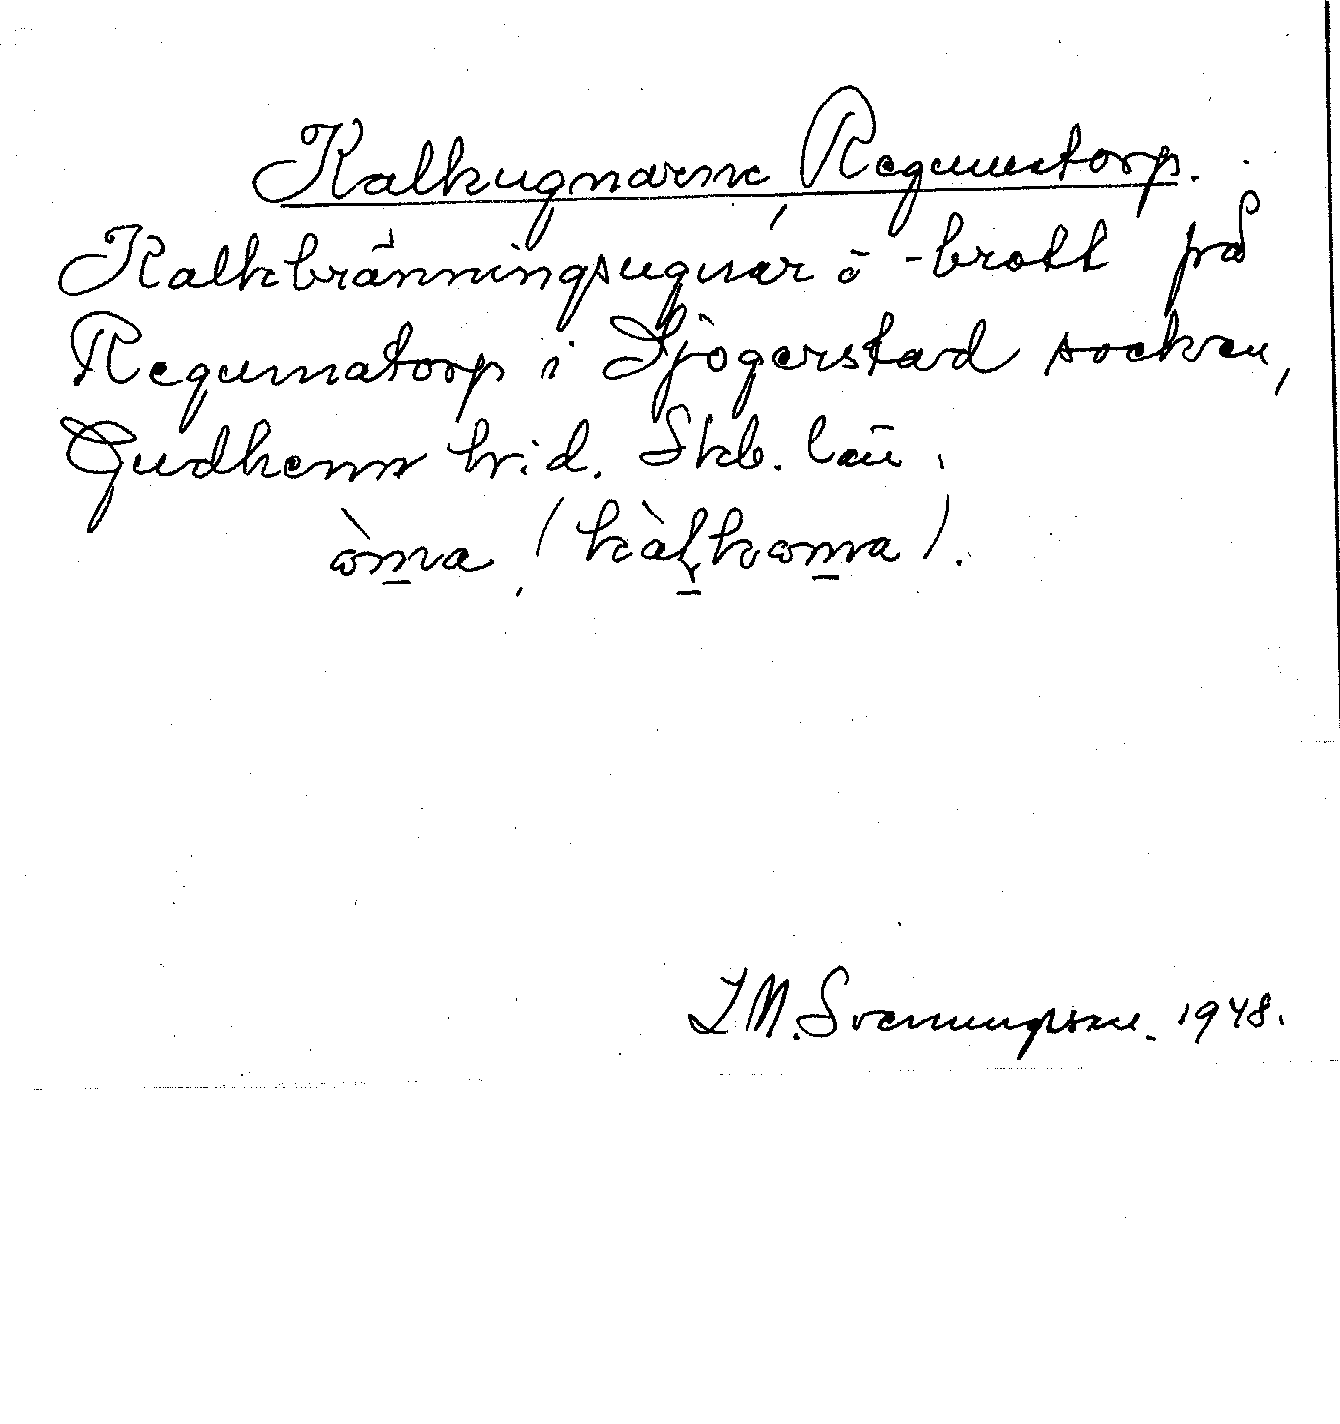 Kalkugnarne, Regumatorp.
Kalkbränningsugnar o -brott på
Regumatorp i Sjogerstad socken,
Gudhems hrd. Skb. län.
òm̲na (kàl̲kom̲na).
L M. Svenungsson. 1948.